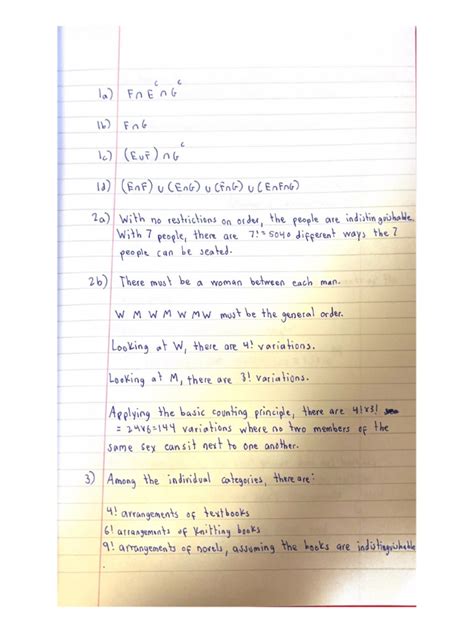 1a) F∩E^c∩G^c
1b) F∩G
1c) (E∪F)∩G^c
1d) (E∩F) ∪ (E∩G) ∪ (F∩G) ∪ (E∩F∩G)
2a) With no restrictions on order, the people are indistinguishable.
With 7 people, there are 7! = 5040 different ways the 7
people can be seated.
2b) There must be a woman between each man.
W M W M W M W must be the general order.
Looking at W, there are 4! variations.
Looking at M, there are 3! variations.
Applying the basic counting principle, there are 4!×3!
= 24×6=144 variations where no two members of the
same sex can sit next to one another.
3) Among the individual categories, there are:
4! arrangements of textbooks
6! arrangements of knitting books
9! arrangements of novels, assuming the books are indistinguishable
.